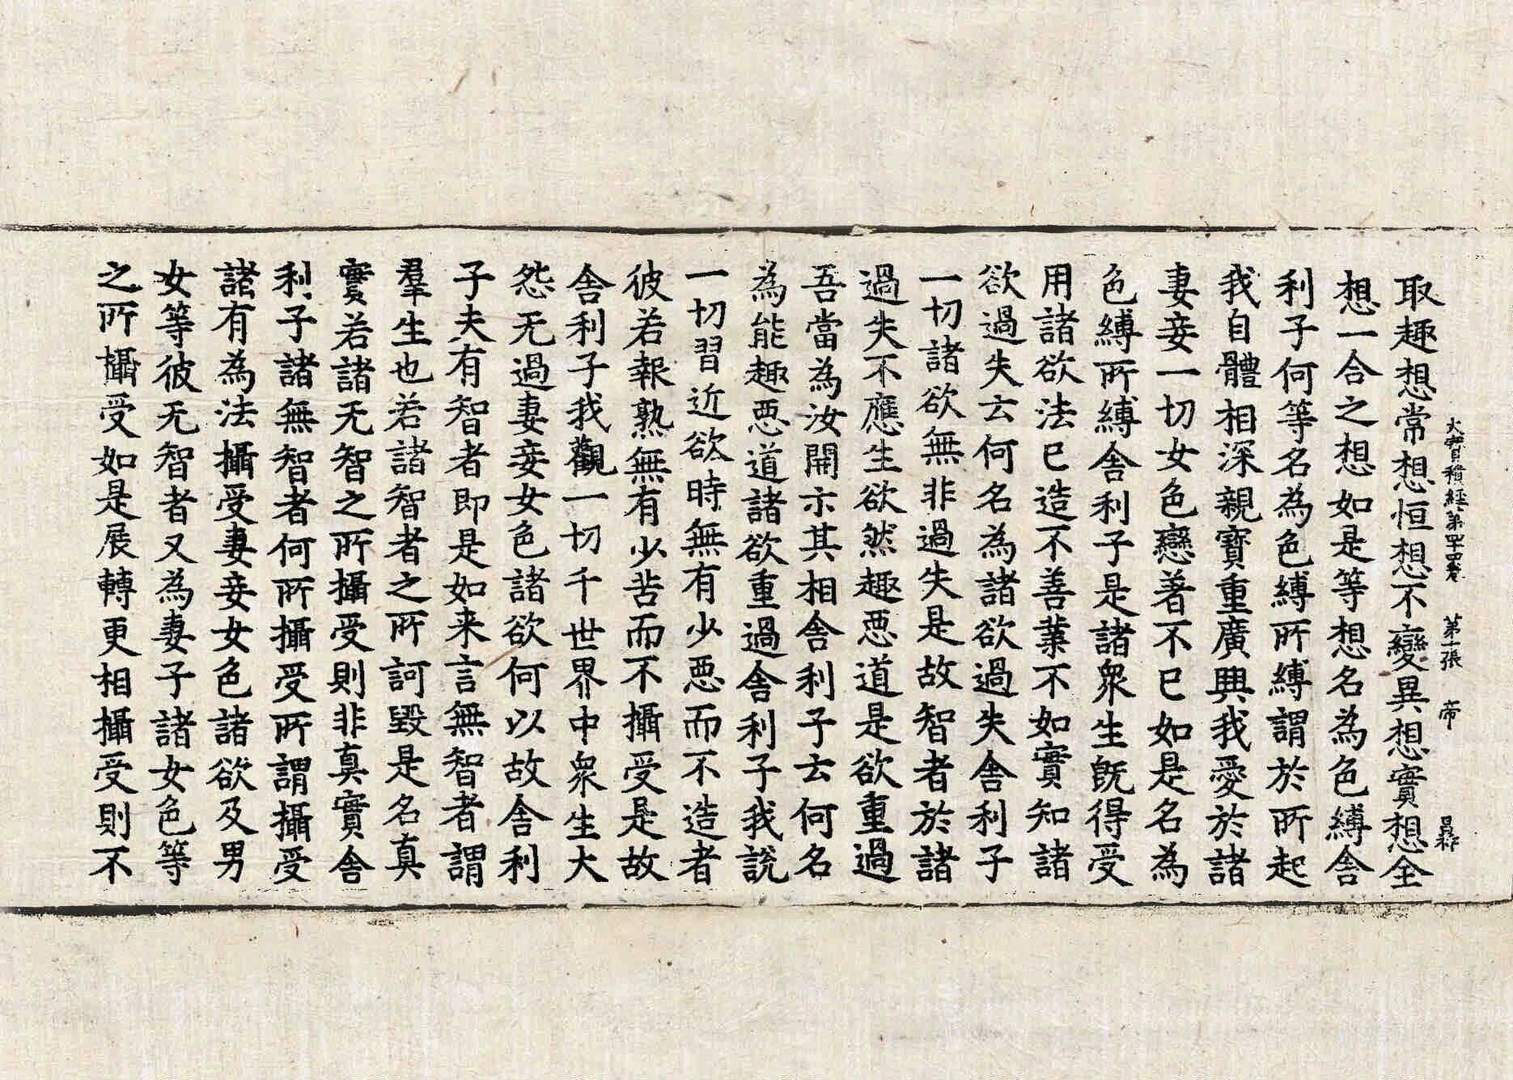 大寶積經第四十四卷 第十一張 帝
取趣想常想恒想不變異想實想全
想一合之想如是等想名為色縛舍
利子何等名為色縛所縛謂於所起
我自體相深親寶重廣興我愛於諸
妻妾一切女色戀著不已如是名為
色縛所縛舍利子是諸衆生旣得受
用諸欲法已造不善業不如實知諸
欲過失云何名為諸欲過失舍利子
一切諸欲無非過失是故智者於諸
過失不應生欲然趣惡道是欲重過
吾當為汝開示其相舍利子云何名
為能趣惡道諸欲重過舍利子我說
一切習近欲時無有少惡而不造者
彼若報熟無有少苦而不攝受是故
舍利子我觀一切千世界中衆生大
怨无過妻妾女色諸欲何以故舍利
子夫有智者即是如来言無智者謂
羣生也若諸智者之所訶毀是名真
實若諸无智之所攝受則非真實舍
利子諸無智者何所攝受所謂攝受
諸有為法攝受妻妾女色諸欲及男
女等彼无智者又為妻子諸女色等
之所攝受如是展轉更相攝受則不